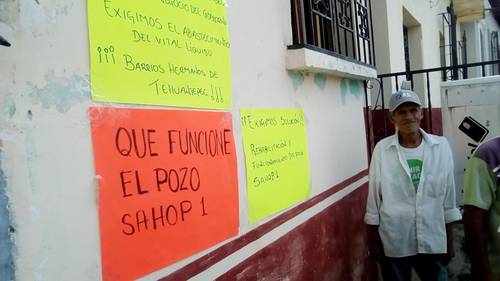 NEGOCIO DEL GOBIERNO
EXIGIMOS EL ABASTECIMIENTO
DEL VITAL LÍQUIDO
¡¡¡ BARRIOS HERMANOS DE
TEHUANTEPEC !!!
QUE FUNCIONE
EL POZO
SAHOP 1
¡¡EXIGIMOS SOLUCIÓN!!
REHABILITACIÓN Y
FUNCIONAMIENTO DEL POZO
SAHOP 1